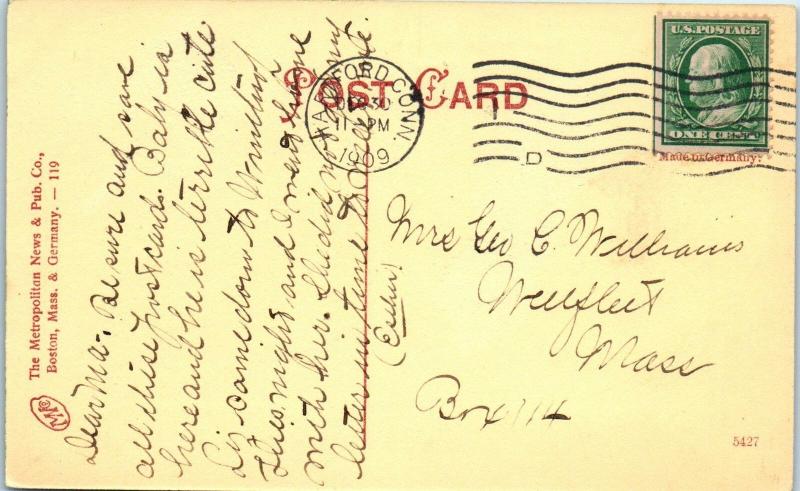 POST CARD
HARTFORD, CONN.
DEC 30
11 PM
1909
D
U.S. POSTAGE
ONE CENT
Made in Germany.
The Metropolitan News & Pub. Co.,
Boston, Mass. & Germany. — 119
Dear Ma-. Be sure and save
all these postcards. Baby is
here and he is terrible cute
Liz came down to
Tues night and I went home
with her. She did n't get my
letter in time to
(Esther)
Mrs Geo C. Williams
Wellfleet
Mass
Box 114
5427